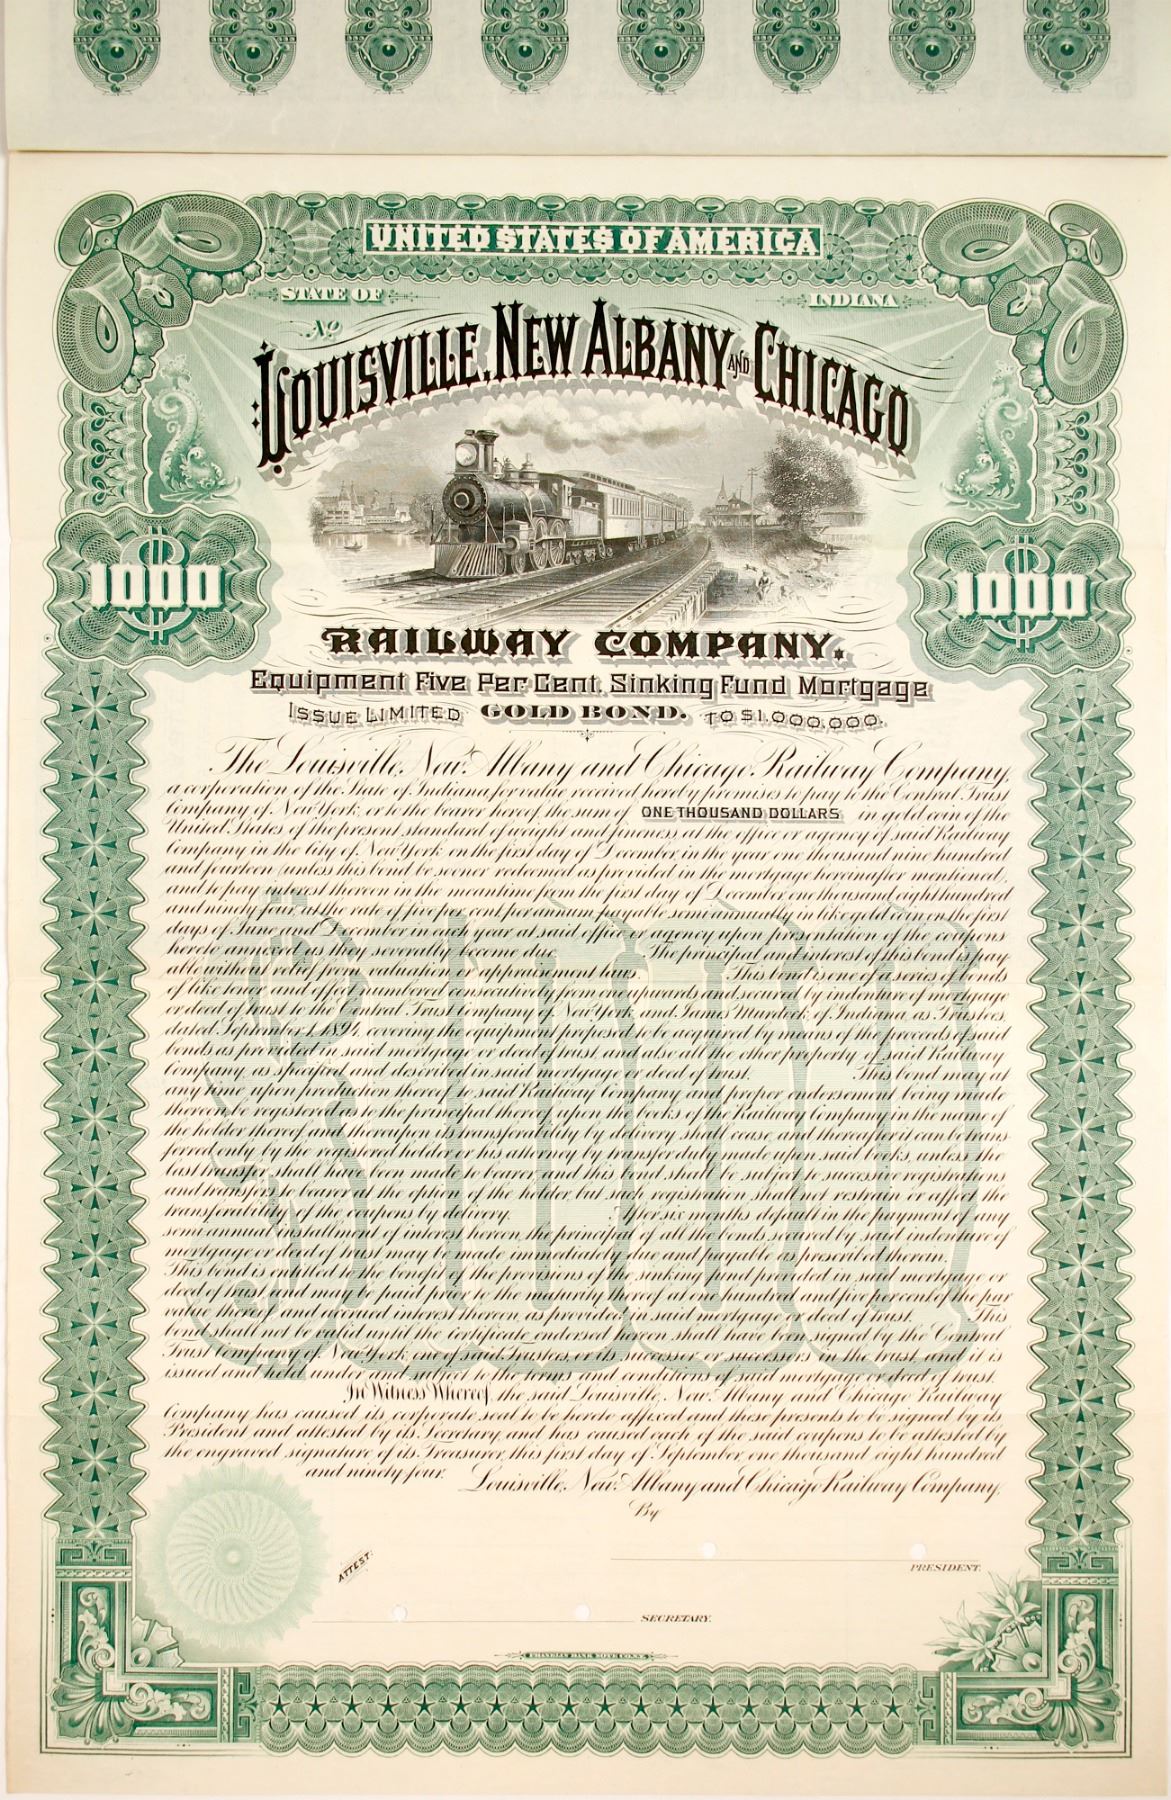 UNITED STATES OF AMERICA
STATE OF INDIANA
No
LOUISVILLE, NEW ALBANY AND CHICAGO
$1000 $1000
RAILWAY COMPANY.
Equipment Five Per Cent. Sinking Fund Mortgage
ISSUE LIMITED GOLD BOND. TO $1,000,000.
The Louisville, New Albany and Chicago Railway Company,
a corporation of the State of Indiana, for value received hereby promises to pay to the Central Trust
Company of New York, or to the bearer hereof, the sum of ONE THOUSAND DOLLARS in gold coin of the
United States of the present standard of weight and fineness, at the office or agency of said Railway
Company in the City of New York, on the first day of December, in the year one thousand nine hundred
and fourteen (unless this bond be sooner redeemed as provided in the mortgage hereinafter mentioned,
and to pay interest thereon in the meantime from the first day of December, one thousand eight hundred
and ninety four, at the rate of five per cent. per annum, payable semi-annually in like gold coin on the first
days of June and December in each year at said office or agency upon presentation of the coupons
hereto annexed as they severally become due. The principal and interest of this bond is pay-
able without relief from valuation or appraisement laws. This bond is one of a series of bonds
of like tenor and effect numbered consecutively from one upwards and secured by indenture of mortgage
or deed of trust to the Central Trust Company of New York and James Murdock, of Indiana, as Trustees,
dated September 1, 1894, covering the equipment proposed to be acquired by means of the proceeds of said
bonds as provided in said mortgage or deed of trust, and also all the other property of said Railway
Company, as specified and described in said mortgage or deed of trust. This bond may at
any time upon production thereof to said Railway Company and proper endorsement being made
thereon be registered as to the principal thereof upon the books of the Railway Company in the name of
the holder thereof and thereupon its transferability by delivery shall cease, and thereafter it can be trans-
ferred only by the registered holder or his attorney by transfer duly made upon said books, unless the
last transfer shall have been made to bearer, and this bond shall be subject to successive registrations
and transfers to bearer at the option of the holder, but such registration shall not restrain or affect the
transferability of the coupons by delivery. After six months default in the payment of any
semi-annual installment of interest hereon, the principal of all the bonds secured by said indenture of
mortgage or deed of trust may be made immediately due and payable as prescribed therein.
This bond is entitled to the benefit of the provisions of the sinking fund provided in said mortgage or
deed of trust, and may be paid prior to the maturity thereof at one hundred and five percent of the par
value thereof and accrued interest thereon, as provided in said mortgage or deed of trust. This
bond shall not be valid until the certificate endorsed hereon shall have been signed by the Central
Trust Company of New York, one of said Trustees, or its successor or successors in the trust, and it is
issued and held under and subject to the terms and conditions of said mortgage or deed of trust.
In Witness Whereof, the said Louisville, New Albany and Chicago Railway
Company has caused its corporate seal to be hereto affixed and these presents to be signed by its
President and attested by its Secretary, and has caused each of the said coupons to be attested by
the engraved signature of its Treasurer, this first day of September, one thousand eight hundred
and ninety four. Louisville, New Albany and Chicago Railway Company,
By
ATTEST:
PRESIDENT.
SECRETARY.
FRANKLIN BANK NOTE CO. N.Y.